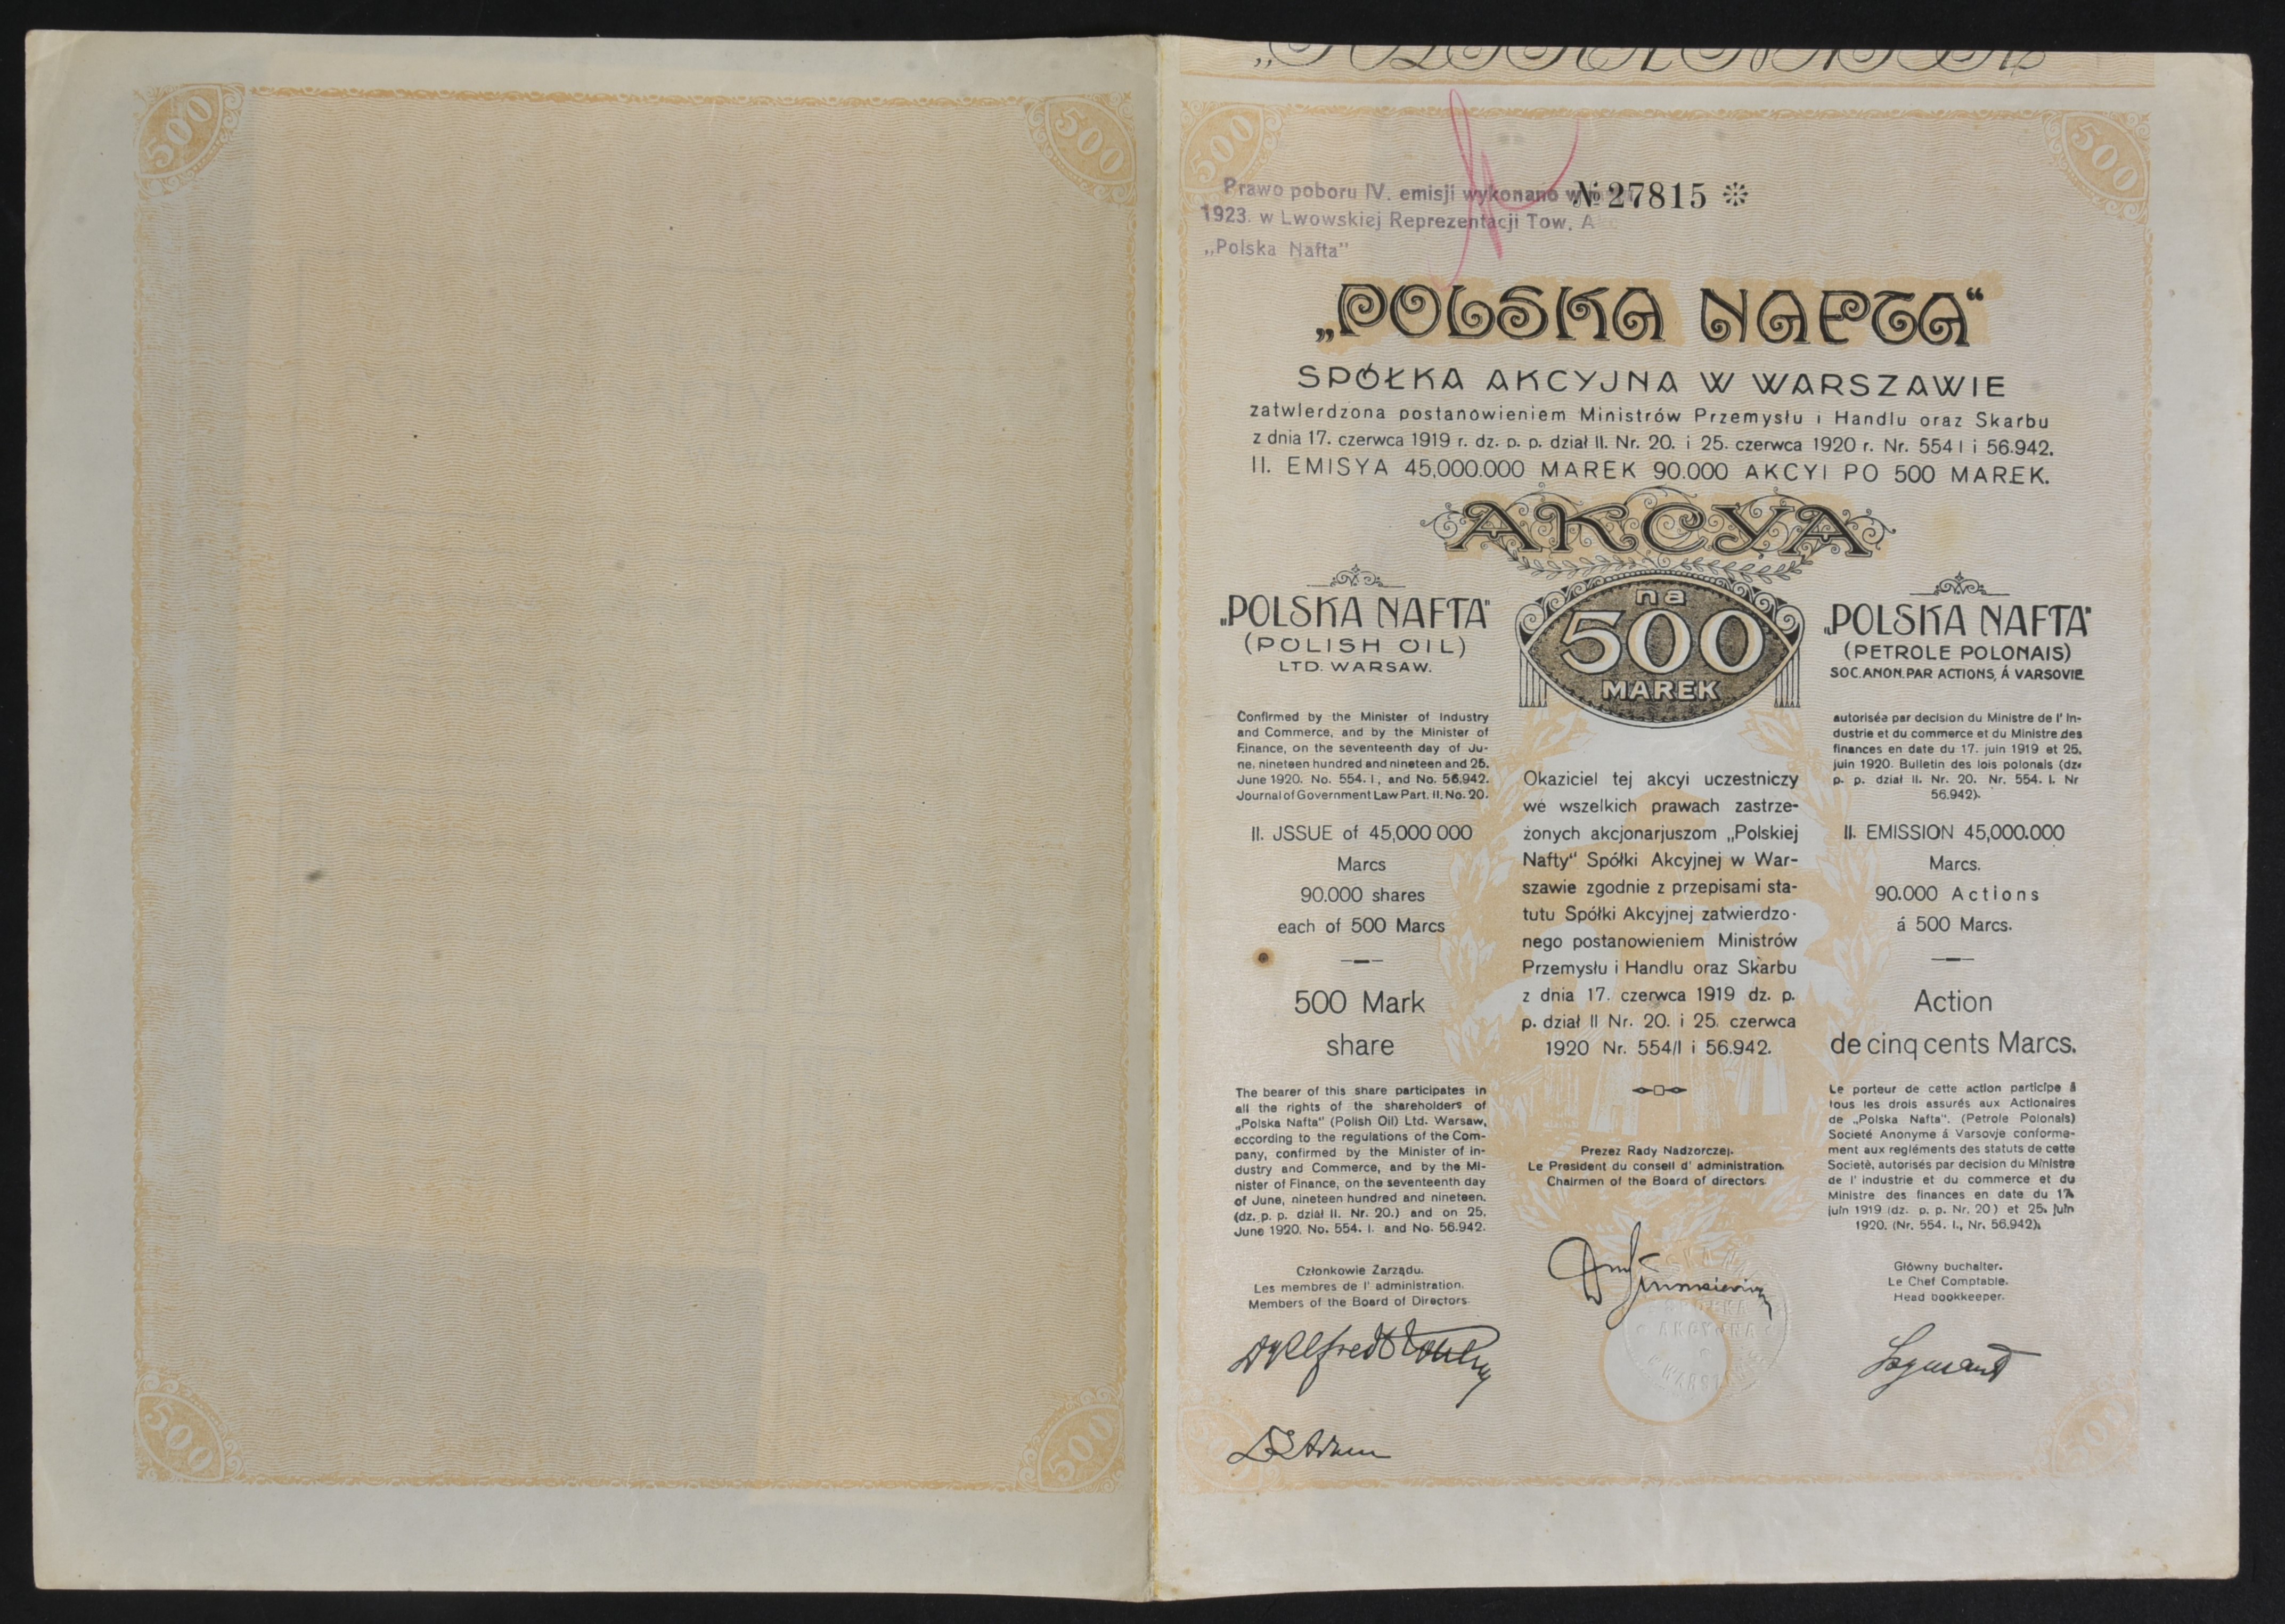 500
500
500
500
Prawo poboru IV. emisji wykonano w
№ 27815
1923. w Lwowskiej Reprezentacji Tow.
„Polska Nafta"
„POLSKA NAFTA“
SPÓŁKA AKCYJNA W WARSZAWIE
zatwierdzona postanowieniem Ministrów Przemysłu i Handlu oraz Skarbu
z dnia 17. czerwca 1919 r. dz. p. p. dział II. Nr. 20. i 25. czerwca 1920 r. Nr. 554 I i 56.942.
II. EMISYA 45,000.000 MAREK 90.000 AKCYI PO 500 MAREK.
AKCYA
na
500
MAREK
„POLSKA NAFTA"
(POLISH OIL)
LTD. WARSAW.
Confirmed by the Minister of Industry
and Commerce, and by the Minister of
Finance, on the seventeenth day of Ju-
ne, nineteen hundred and nineteen and 25.
June 1920. No. 554. I, and No. 56.942.
Journal of Government Law Part. II. No. 20.
II. JSSUE of 45,000 000
Marcs
90.000 shares
each of 500 Marcs
500 Mark
share
The bearer of this share participates in
all the rights of the shareholders of
„Polska Nafta" (Polish Oil) Ltd. Warsaw,
eccording to the regulations of the Com-
pany, confirmed by the Minister of In-
dustry and Commerce, and by the Mi-
nister of Finance, on the seventeenth day
of June, nineteen hundred and nineteen.
(dz. p. p. dział II. Nr. 20.) and on 25.
June 1920. No. 554. I. and No. 56.942.
Członkowie Zarządu.
Les membres de l' administration.
Members of the Board of Directors
Okaziciel tej akcyi uczestniczy
we wszelkich prawach zastrze-
żonych akcjonarjuszom „Polskiej
Nafty“ Spółki Akcyjnej w War-
szawie zgodnie z przepisami sta-
tutu Spółki Akcyjnej zatwierdzo-
nego postanowieniem Ministrów
Przemysłu i Handlu oraz Skarbu
z dnia 17. czerwca 1919 dz. p.
p. dział II Nr. 20. i 25. czerwca
1920 Nr. 554/I i 56.942.
Prezez Rady Nadzorczej.
Le President du conseil d' administration.
Chairmen of the Board of directors
SPÓŁKA
AKCYJNA
„POLSKA NAFTA"
(PETROLE POLONAIS)
SOC. ANON. PAR ACTIONS, Á VARSOVIE
autoriséa par decision du Ministre de l' In-
dustrie et du commerce et du Ministre des
finances en date du 17. juin 1919 et 25.
juin 1920. Bulletin des lois polonais (dz.
p. p. dział II. Nr. 20. Nr. 554. I. Nr
56.942).
II. EMISSION 45,000.000
Marcs.
90.000 Actions
á 500 Marcs.
Action
de cinq cents Marcs.
Le porteur de cette action participe á
tous les drois assurés aux Actionaires
de „Polska Nafta". (Petrole Polonais)
Societé Anonyme á Varsovje conforme-
ment aux regléments des statuts de cette
Societè, autorisés par decision du Ministre
de l' industrie et du commerce et du
Ministre des finances en date du 17.
juin 1919 (dz. p. p. Nr. 20) et 25. juin
1920. (Nr. 554. I., Nr. 56.942).
Główny buchalter.
Le Chef Comptable.
Head bookkeeper.
500
500